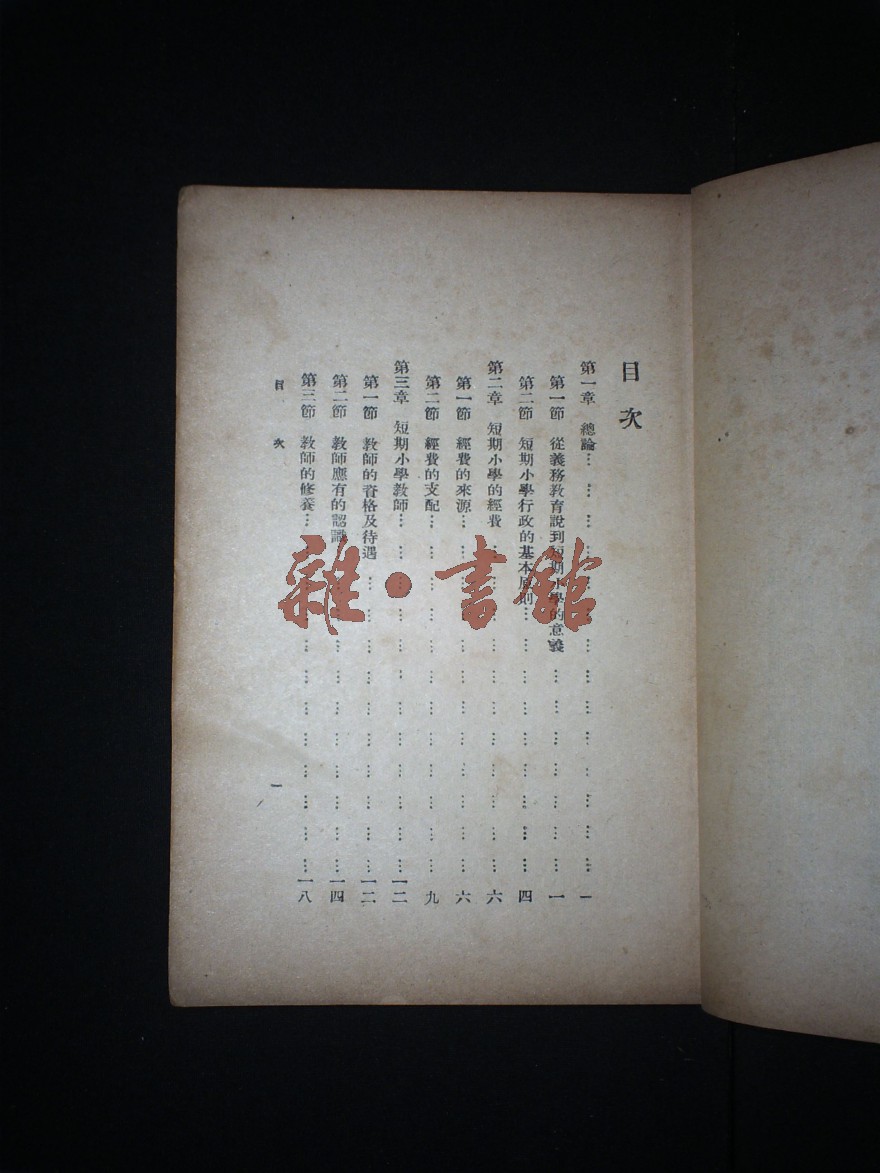 目次
第一章 總論……………………………一
第一節 從義務教育說到短期小學的意義……………………一
第二節 短期小學行政的基本原則……………………四
第二章 短期小學的經費……………………六
第一節 經費的來源……………………六
第二節 經費的支配……………………九
第三章 短期小學教師……………………一二
第一節 教師的資格及待遇……………………一二
第二節 教師應有的認識……………………一四
第三節 教師的修養……………………一八
目次 一
雜·書館